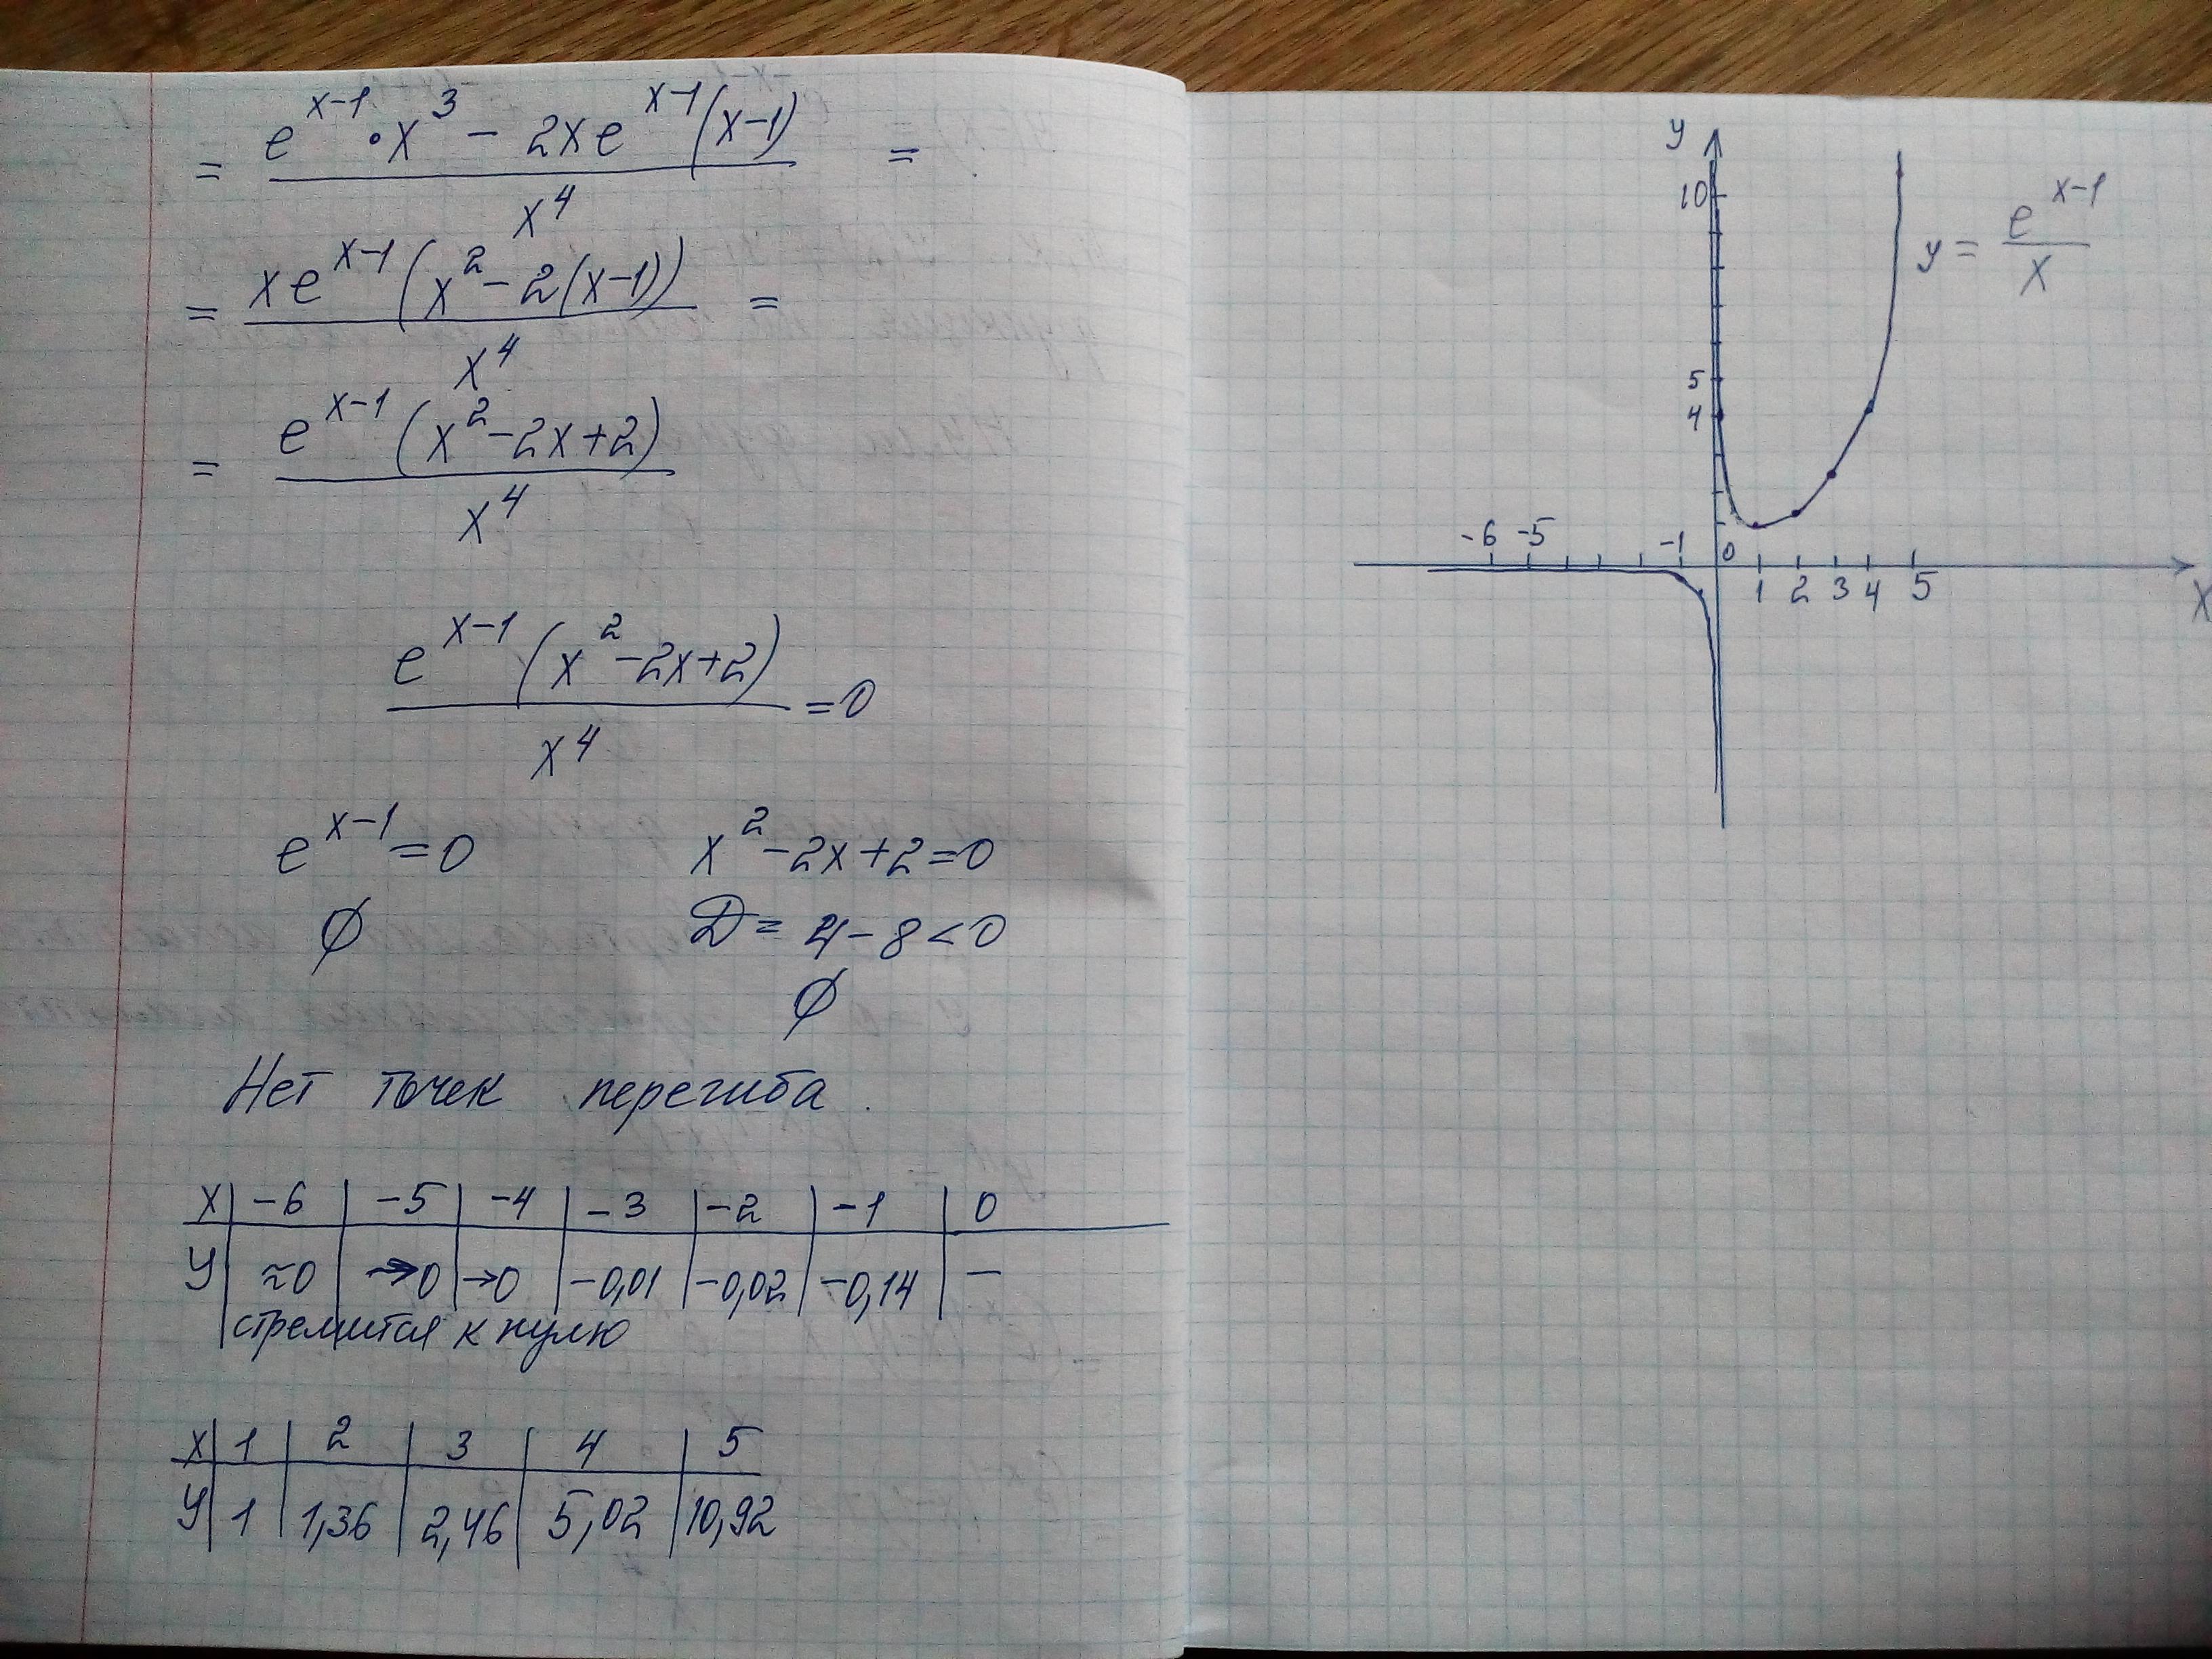 = (e^{x-1} · x^3 - 2xe^{x-1}(x-1)) / x^4 =
= (xe^{x-1}(x^2 - 2(x-1))) / x^4 =
= (e^{x-1}(x^2 - 2x + 2)) / x^4
(e^{x-1}(x^2 - 2x + 2)) / x^4 = 0
e^{x-1} = 0 x^2 - 2x + 2 = 0
∅ D = 4 - 8 < 0
∅
Нет точек перегиба.
x | -6 | -5 | -4 | -3 | -2 | -1 | 0
y | ≈0 | →0 | →0 | -0,01 | -0,02 | -0,14 | —
стремится к нулю
x | 1 | 2 | 3 | 4 | 5
y | 1 | 1,36 | 2,46 | 5,02 | 10,92
y
10
y = e^{x-1} / x
5
4
-6 -5 -1 0
1 2 3 4 5 x